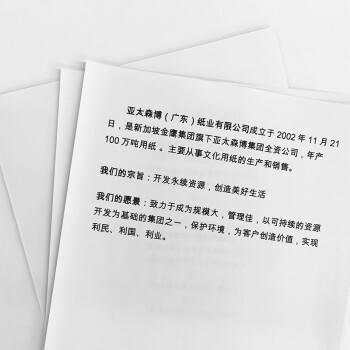 亚太森博（广东）纸业有限公司成立于 2002 年 11 月 21
日，是新加坡金鹰集团旗下亚太森博集团全资公司，年产
100 万吨用纸 。主要从事文化用纸的生产和销售。
我们的宗旨：开发永续资源，创造美好生活
我们的愿景：致力于成为规模大，管理佳，以可持续的资源
开发为基础的集团之一，保护环境，为客户创造价值，实现
利民、利国、利业。